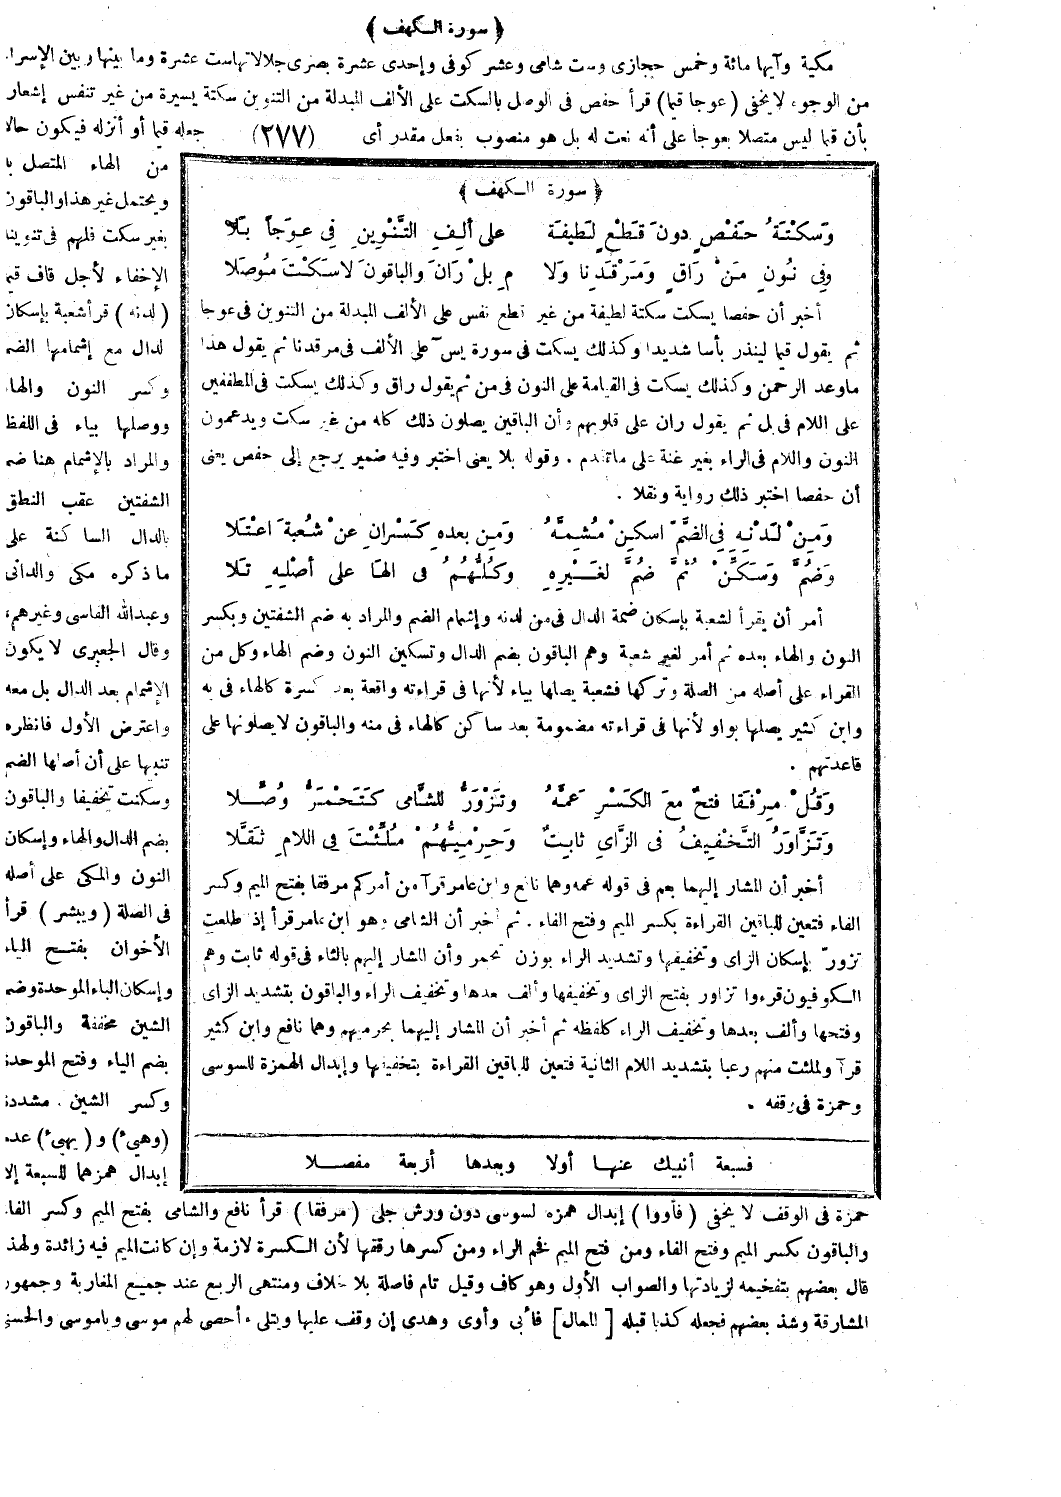 ﴿ سورة الكهف ﴾
مكية وآيها مائة وخمس حجازى وست شامى وعشر كوفى وإحدى عشرة بصرى جلالاتها ست عشرة وما بينها وبين الإسراء
من الوجوه لا يخفى ( عوجا قيما ) قرأ حفص فى الوصل بالسكت على الألف المبدلة من التنوين سكتة يسيرة من غير تنفس إشعار
بأن قيما ليس متصلا بعوجا على أنه نعت له بل هو منصوب بفعل مقدر أى (٢٧٧) جعله قيما أو أنزله فيكون حالا
من الهاء المتصل با
ويحتمل غير هذا والباقون
بغير سكت فلهم فى تنوينا
الإخفاء لأجل قاف قيما
( لدنه ) قرأ شعبة بإسكان
لدال مع إشمامها الضم
وكسر النون والهاء
ووصلها بياء فى اللفظ
والمراد بالإشمام هنا ضم
الشفتين عقب النطق
بالدال الساكنة على
ما ذكره مكى والدانى
وعبد الله الفاسى وغيرهم،
وقال الجعبرى لا يكون
الإشمام بعد الدال بل معه
واعترض الأول فانظره
تنبها على أن أصلها الضم
وسكنت تخفيفا والباقون
بضم الدال والهاء وإسكان
النون والمكى على أصله
فى الصلة ( ويبشر ) قرأ
الأخوان بفتح الياء
وإسكان الباء الموحدة وضم
الشين مخففة والباقون
بضم الياء وفتح الموحدة
وكسر الشين . مشددة
( وهيئ ) و ( يهيئ ) عدم
إبدال همزها للسبعة إلا
﴿ سورة الكهف ﴾
وَسَكْتَةُ حَفْصٍ دونَ قَطْعٍ لَطيفَة على ألِفِ التَّنْوينِ فِي عِوَجاً بَلَا
وفِي نُونِ مَنْ رَاقٍ وَمَرْقَدِنا وَلَا مِ بلْ رَانَ والباقونَ لا سَكْتَ مُوصَلا
أخبر أن حفصا يسكت سكتة لطيفة من غير قطع نفس على الألف المبدلة من التنوين فى عوجا
ثم يقول قيما لينذر بأسا شديدا وكذلك يسكت فى سورة يس على الألف فى مرقدنا ثم يقول هذا
ما وعد الرحمن وكذلك يسكت فى القيامة على النون فى من ثم يقول راق وكذلك يسكت فى المطففين
على اللام فى بل ثم يقول ران على قلوبهم وأن الباقين يصلون ذلك كله من غير سكت ويدغمون
النون واللام فى الراء بغير غنة على ما تقدم . وقوله بلا يعنى اختبر وفيه ضمير يرجع إلى حفص يعنى
أن حفصا اختبر ذلك رواية ونقلا .
وَمِنْ لَدْنِهِ فِي الضَّمِّ اسكِنْ مُشِمَّهُ وَمِن بعدهِ كَسْرانِ عنْ شُعبةَ اعْتَلا
وَضُمَّ وَسَكِّنْ ثُمَّ ضُمَّ لِغَيْرِهِ وكُلُّهُمُ فى الهَا على أصْلِهِ تَلا
أمر أن يقرأ لشعبة بإسكان ضمة الدال فى من لدنه وإشمام الضم والمراد به ضم الشفتين وبكسر
النون والهاء بعده ثم أمر لغير شعبة وهم الباقون بضم الدال وتسكين النون وضم الهاء وكل من
القراء على أصله من الصلة وتركها فشعبة يصلها بياء لأنها فى قراءته واقعة بعد كسرة كالهاء فى به
وابن كثير يصلها بواو لأنها فى قراءته مضمومة بعد ساكن كالهاء فى منه والباقون لا يصلونها على
قاعدتهم .
وَقُلْ مِرفَقَا فتحٌ معَ الكَسْرِ عَمَّهُ وتَزْوَرُّ للشَّامى كَتَحْمَرُّ وُصِّلا
وَتَزَّاوَرُ التَّخْفيفُ فى الزَّايِ ثابِتٌ وَحِرْمِيُّهُمْ مُلِّئْتَ فِي اللامِ ثَقَّلا
أخبر أن المشار إليهما بعم فى قوله عمه وهما نافع وابن عامر قرآ من أمركم مرفقا بفتح الميم وكسر
الفاء فتعين للباقين القراءة بكسر الميم وفتح الفاء . ثم أخبر أن الشامى وهو ابن عامر قرأ إذ طلعت
تزورّ بإسكان الزاى وتخفيفها وتشديد الراء بوزن تحمر وأن المشار إليهم بالثاء فى قوله ثابت وهم
الكوفيون قرءوا تزاور بفتح الزاى وتخفيفها وألف بعدها وتخفيف الراء والباقون بتشديد الزاى
وفتحها وألف بعدها وتخفيف الراء كلفظه ثم أخبر أن المشار إليهما بحرميهم وهما نافع وابن كثير
قرآ ولملئت منهم رعبا بتشديد اللام الثانية فتعين للباقين القراءة بتخفيفها وإبدال الهمزة للسوسى
وحمزة فى وقفه .
فسبعة أنبيك عنها أولا وبعدها أربعة مفصلا
حمزة فى الوقف لا يخفى ( فأووا ) إبدال همزه لسوسى دون ورش جلى ( مرفقا ) قرأ نافع والشامى بفتح الميم وكسر الفاء
والباقون بكسر الميم وفتح الفاء ومن فتح الميم فخم الراء ومن كسرها رققها لأن الكسرة لازمة وإن كانت الميم فيه زائدة ولهذ
قال بعضهم بتفخيمه لزيادتها والصواب الأول وهو كاف وقيل تام فاصلة بلا خلاف ومنتهى الربع عند جميع المغاربة وجمهور
المشارقة وشذ بعضهم فجعله كذبا قبله [ الممال ] فأبى وأوى وهدى إن وقف عليها ويتلى ء أحصى لهم موسى وياموسى والحسنى